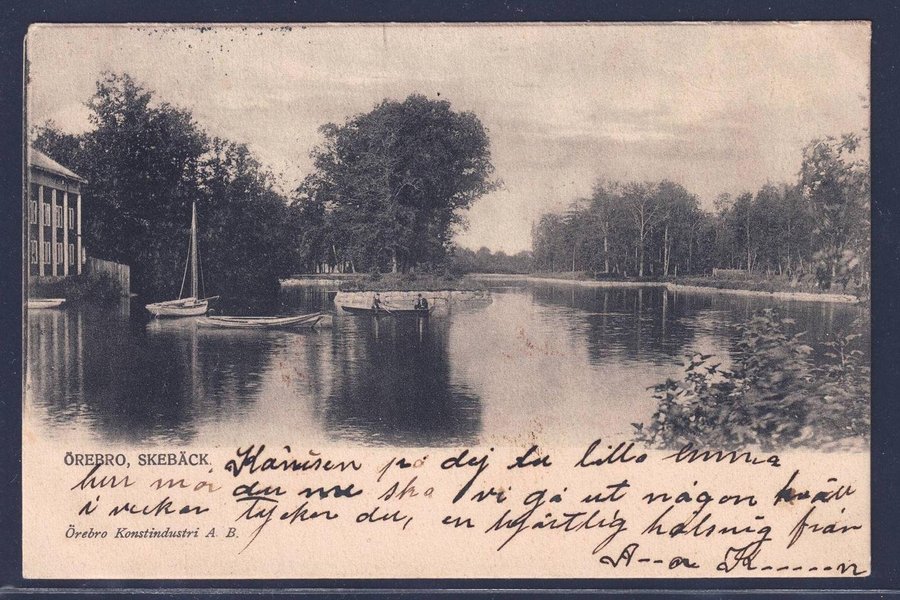 ÖREBRO, SKEBÄCK.
Hänisen på dej du lilla emma
hur mår du nu ska vi gå ut någon kväll
i veckan tycker du, en hjärtlig hälsnig från
A--a K------n
Örebro Konstindustri A. B.